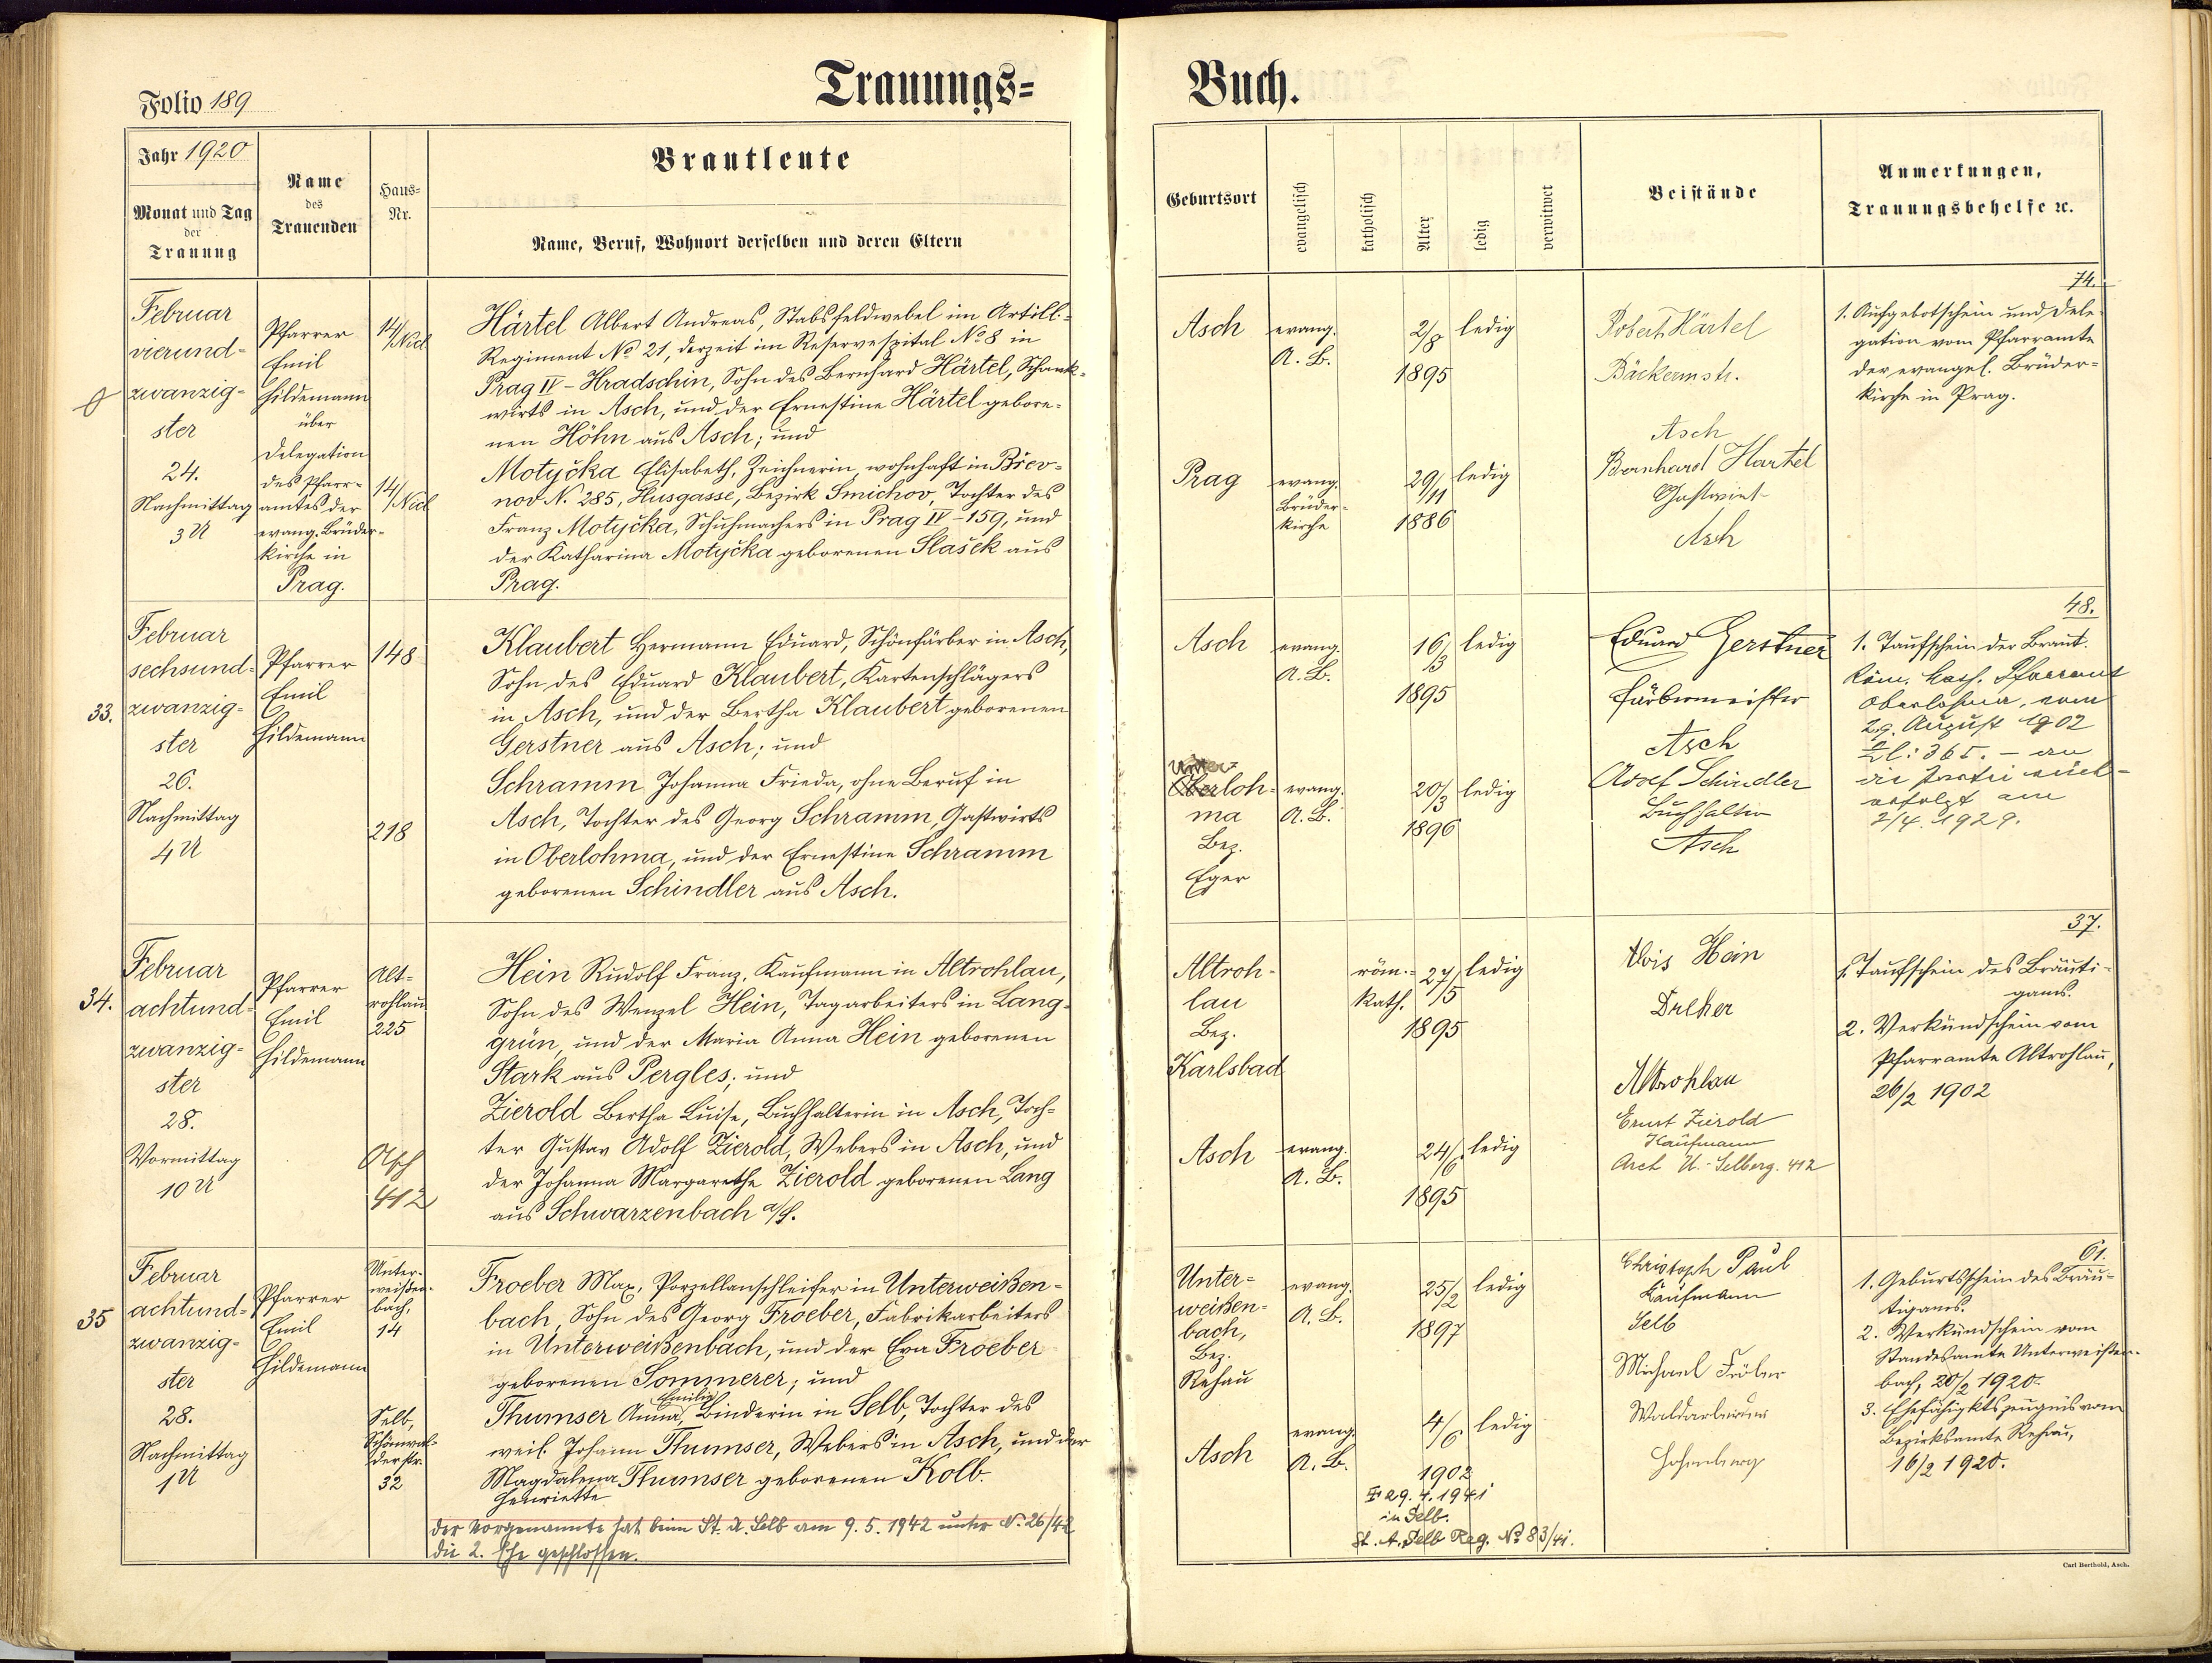 Trauungs=
Buch.
Folio 189
Jahr 1920
Monat und Tag
der
Trauung
Name
des
Trauenden
Haus=
Nr.
Brautleute
Name, Beruf, Wohnort derselben und deren Eltern
Geburtsort
evangelisch
katholisch
Alter
ledig
verwitwet
Beistände
Anmerkungen,
Trauungsbehelfe ꝛc.
Februar
vierund-
zwanzig-
ster
24.
Nachmittag
3 U
Pfarrer
Emil
Hildemann
über
Delegation
des Pfarr-
amtes der
evang. Brüder-
kirche in
Prag.
14/
/Nied
14/
/Nied
Härtel Albert Andreas, Stabsfeldwebel im Artill.-
Regiment No 21, derzeit im Reservespital No 8 in
Prag IV - Hradschin, Sohn des Bernhard Härtel, Schank-
wirts in Asch, und der Ernestine Härtel gebore-
nen Höhn aus Asch; und
Motyčka Elisabeth, Zeichnerin, wohnhaft in Břev-
nov N. 285, Husgasse, Bezirk Smichov, Tochter des
Franz Motyčka, Schuhmachers in Prag IV - 159, und
der Katharina Motyčka geborenen Slašek aus
Prag.
Asch
evang.
A. B.
2/8
1895
ledig
Prag
evang.
Brüder-
kirche
29/11
1886
ledig
Robert Härtel
Bäckermstr.
Asch
Bernhard Härtel
Gastwirt
Asch
74.
1. Aufgebotschein und Dele-
gation vom Pfarramte
der evangel. Brüder-
kirche in Prag.
33.
Februar
sechsund-
zwanzig-
ster
26.
Nachmittag
4 U
Pfarrer
Emil
Hildemann
148
218
Klaubert Hermann Eduard, Schönfärber in Asch,
Sohn des Eduard Klaubert, Kartenschlägers
in Asch, und der Bertha Klaubert geborenen
Gerstner aus Asch; und
Schramm Johanna Frieda, ohne Beruf in
Asch, Tochter des Georg Schramm, Gastwirts
in Oberlohma, und der Ernestine Schramm
geborenen Schindler aus Asch.
Asch
evang.
A. B.
16/3
1895
ledig
Unter
Oberloh-
ma
Bez.
Eger
evang.
A. B.
20/3
1896
ledig
Eduard Gerstner
Färbermeister
Asch
Adolf Schindler
Buchhalter
Asch
48.
1. Taufschein der Braut.
Röm. kath. Pfarramt
Oberlohma, vom
29. August 1902
Zl: 365. - an
die Partei rück-
erfolgt am
2/4. 1929.
34.
Februar
achtund-
zwanzig-
ster
28.
Vormittag
10 U
Pfarrer
Emil
Hildemann
Alt-
rohlau
225
Asch
412
Hein Rudolf Franz, Kaufmann in Altrohlau,
Sohn des Wenzel Hein, Tagarbeiters in Lang-
grün, und der Maria Anna Hein geborenen
Stark aus Pergles; und
Zierold Bertha Luise, Buchhalterin in Asch, Toch-
ter Gustav Adolf Zierold, Webers in Asch, und
der Johanna Margarethe Zierold geborenen Lang
aus Schwarzenbach a/S.
Altroh-
lau
Bez.
Karlsbad
röm.-
kath.
27/5
1895
ledig
Asch
evang.
A. B.
24/6.
1895
ledig
Alois Hein
Dreher
Altrohlau
Ernst Zierold
Kaufmann
Asch U.-Selberg. 412
37.
1. Taufschein des Bräuti-
gams.
2. Verkündschein vom
Pfarramte Altrohlau,
26/2 1902
35
Februar
achtund-
zwanzig-
ster
28.
Nachmittag
1 U
Pfarrer
Emil
Hildemann
Unter-
weißen-
bach,
14
Selb,
Schönwal-
derstr.
32
Froeber Max, Porzellanschleifer in Unterweißen-
bach, Sohn des Georg Froeber, Fabrikarbeiters
in Unterweißenbach, und der Eva Froeber
geborenen Sommerer; und
Emilie
Thumser Anna, Binderin in Selb, Tochter des
weil. Johann Thumser, Webers in Asch, und der
Magdalena Thumser geborenen Kolb.
Henriette
Der Vorgenannte hat beim St. A. Selb am 9. 5. 1942 unter N. 26/42
die 2. Ehe geschlossen.
Unter-
weißen-
bach,
Bez.
Rehau
evang.
A. B.
25/2
1897
ledig
Asch
evang.
A. B.
4/6
1902
ledig
29. 4. 1941
in Selb.
St. A. Selb Reg. No 83/41.
Christoph Paul
Kaufmann
Selb
Michael Fröber
Waldarbeiter
Hohenberg
61.
1. Geburtsschein des Bräu-
tigams.
2. Verkündschein vom
Standesamte Unterweißen-
bach, 20/2 1920.
3. Ehefähigktszeugnis vom
Bezirksamte Rehau,
16/2 1920.
Carl Berthold, Asch.